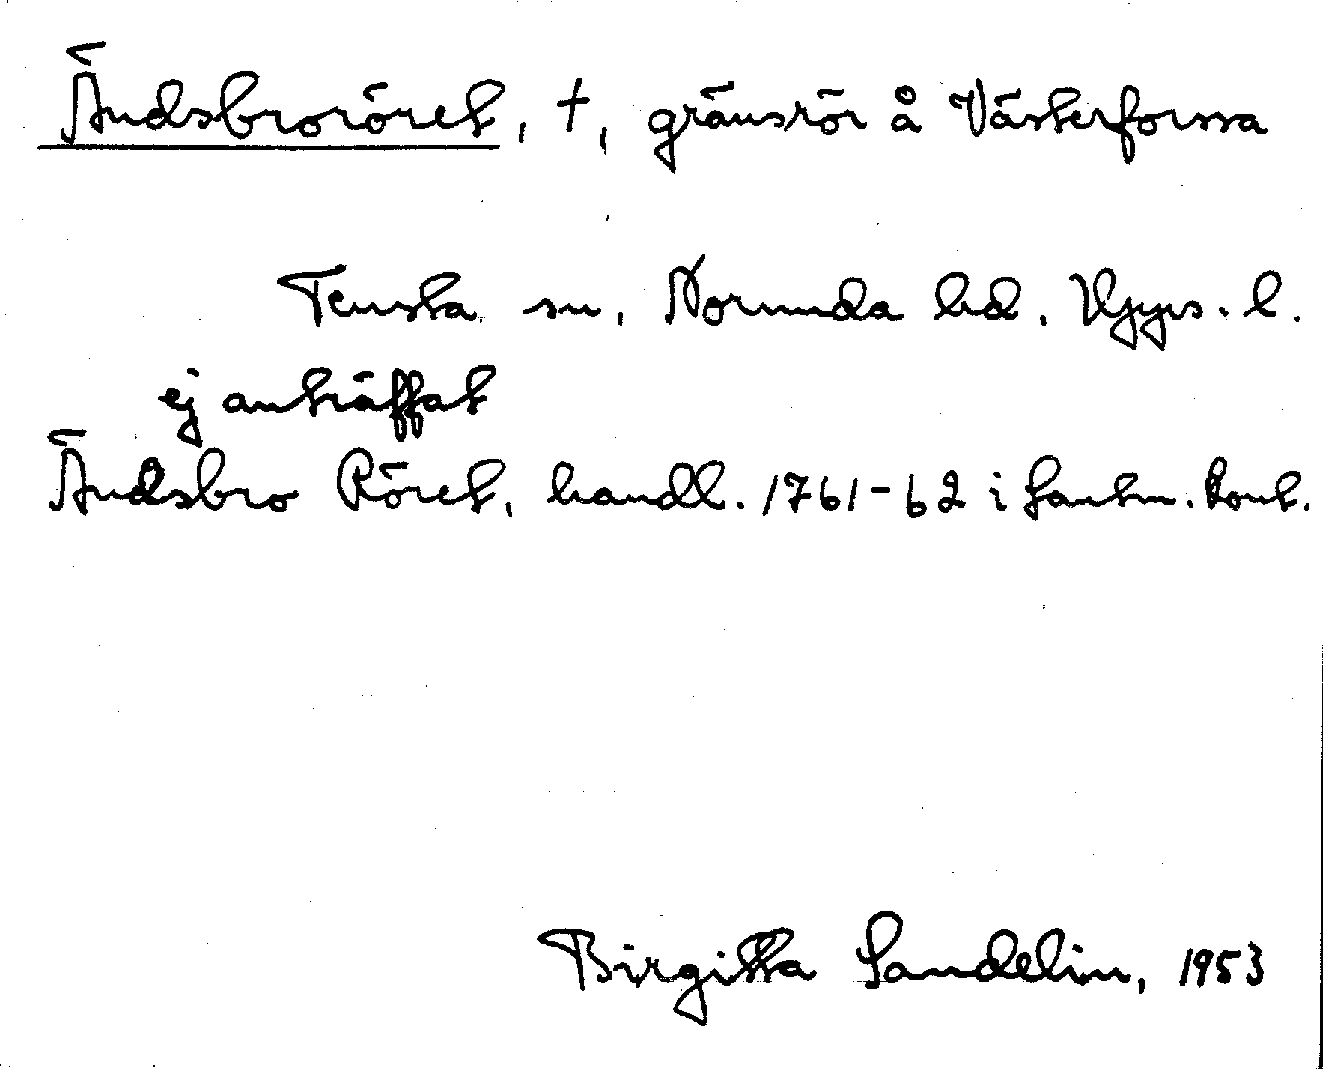 Ändsbroröret, †, gränsrör å Västerforssa
Tensta sn, Norunda hd, Upps. l.
ej anträffat
Ändsbro Röret, handl. 1761-62 i lantm. kont.
Birgitta Sandelin, 1953